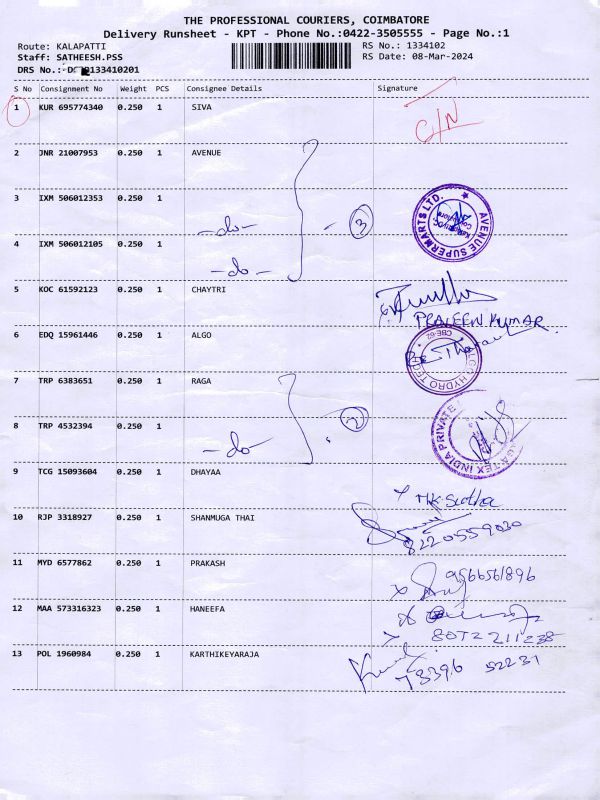 THE PROFESSIONAL COURIERS, COIMBATORE
Delivery Runsheet - KPT - Phone No.:0422-3505555 - Page No.:1
Route: KALAPATTI RS No.: 1334102
Staff: SATHEESH.PSS RS Date: 08-Mar-2024
DRS No.:
S No Consignment No Weight PCS Consignee Details Signature
1 KUR 695774340 0.250 1 SIVA C/N
2 JNR 21007953 0.250 1 AVENUE
3 IXM 506012353 0.250 1 -do- 3 AVENUE SUPERMARTS LTD.
4 IXM 506012105 0.250 1 -do-
5 KOC 61592123 0.250 1 CHAYTRI
PRAVEEN KUMAR
6 EDQ 15961446 0.250 1 ALGO
7 TRP 6383651 0.250 1 RAGA
8 TRP 4532394 0.250 1 -do- 2
9 TCG 15093604 0.250 1 DHAYAA
10 RJP 3318927 0.250 1 SHANMUGA THAI
8220559030
11 MYD 6577862 0.250 1 PRAKASH 9566561896
12 MAA 573316323 0.250 1 HANEEFA
8072 211238
13 POL 1960984 0.250 1 KARTHIKEYARAJA
73396 52231